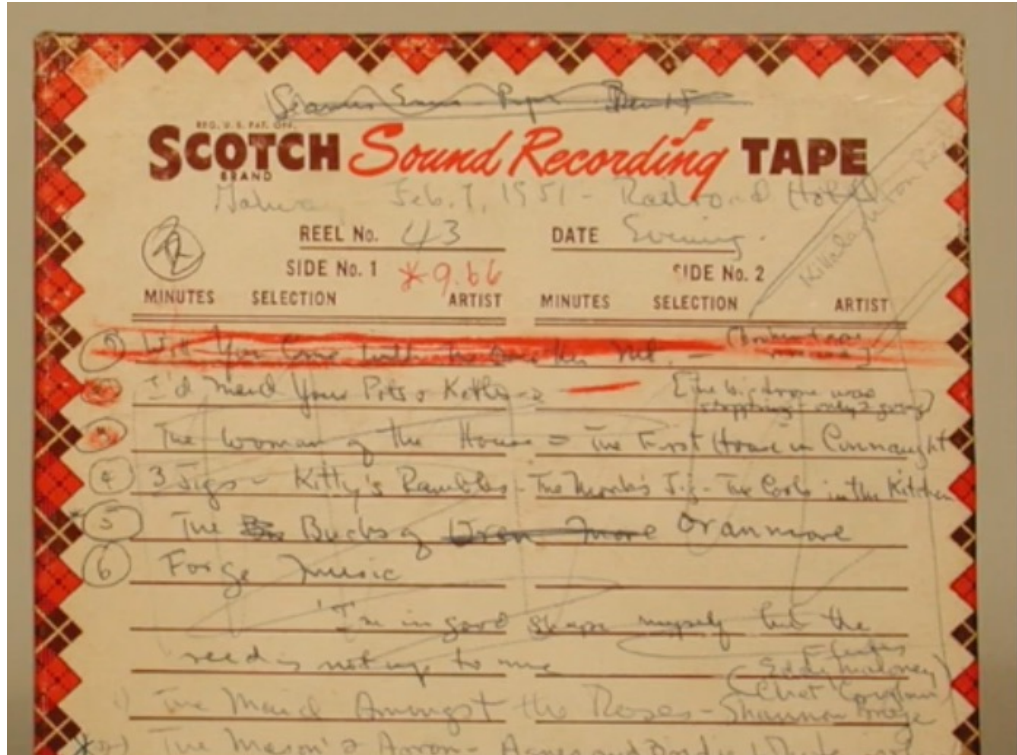 Seamus Ennis Piper
REG. U.S. PAT. OFF.
SCOTCH Sound Recording TAPE
BRAND
Galway Feb. 7, 1951 - Railroad Hotel
REEL No. 43 DATE Evening.
SIDE No. 1 *9.66 SIDE No. 2
MINUTES SELECTION ARTIST MINUTES SELECTION ARTIST
Will You Come with me over the
I'd Mend Your Pots & Kettles - [The big drone was
stopping - only 2 going]
The Woman of the House = The First House in Connaught
4 3 Jigs - Kitty's Rambles - The Monk's Jig - The Cook in the Kitchen
5 The Bucks of Oranmore
6 Forge Music
'I'm in good shape myself but the
reed is not up to me
Flutes
(Eddy Maloney)
1) The Maid Amongst the Roses - Shannon Breeze
*2) The Mason's Apron -